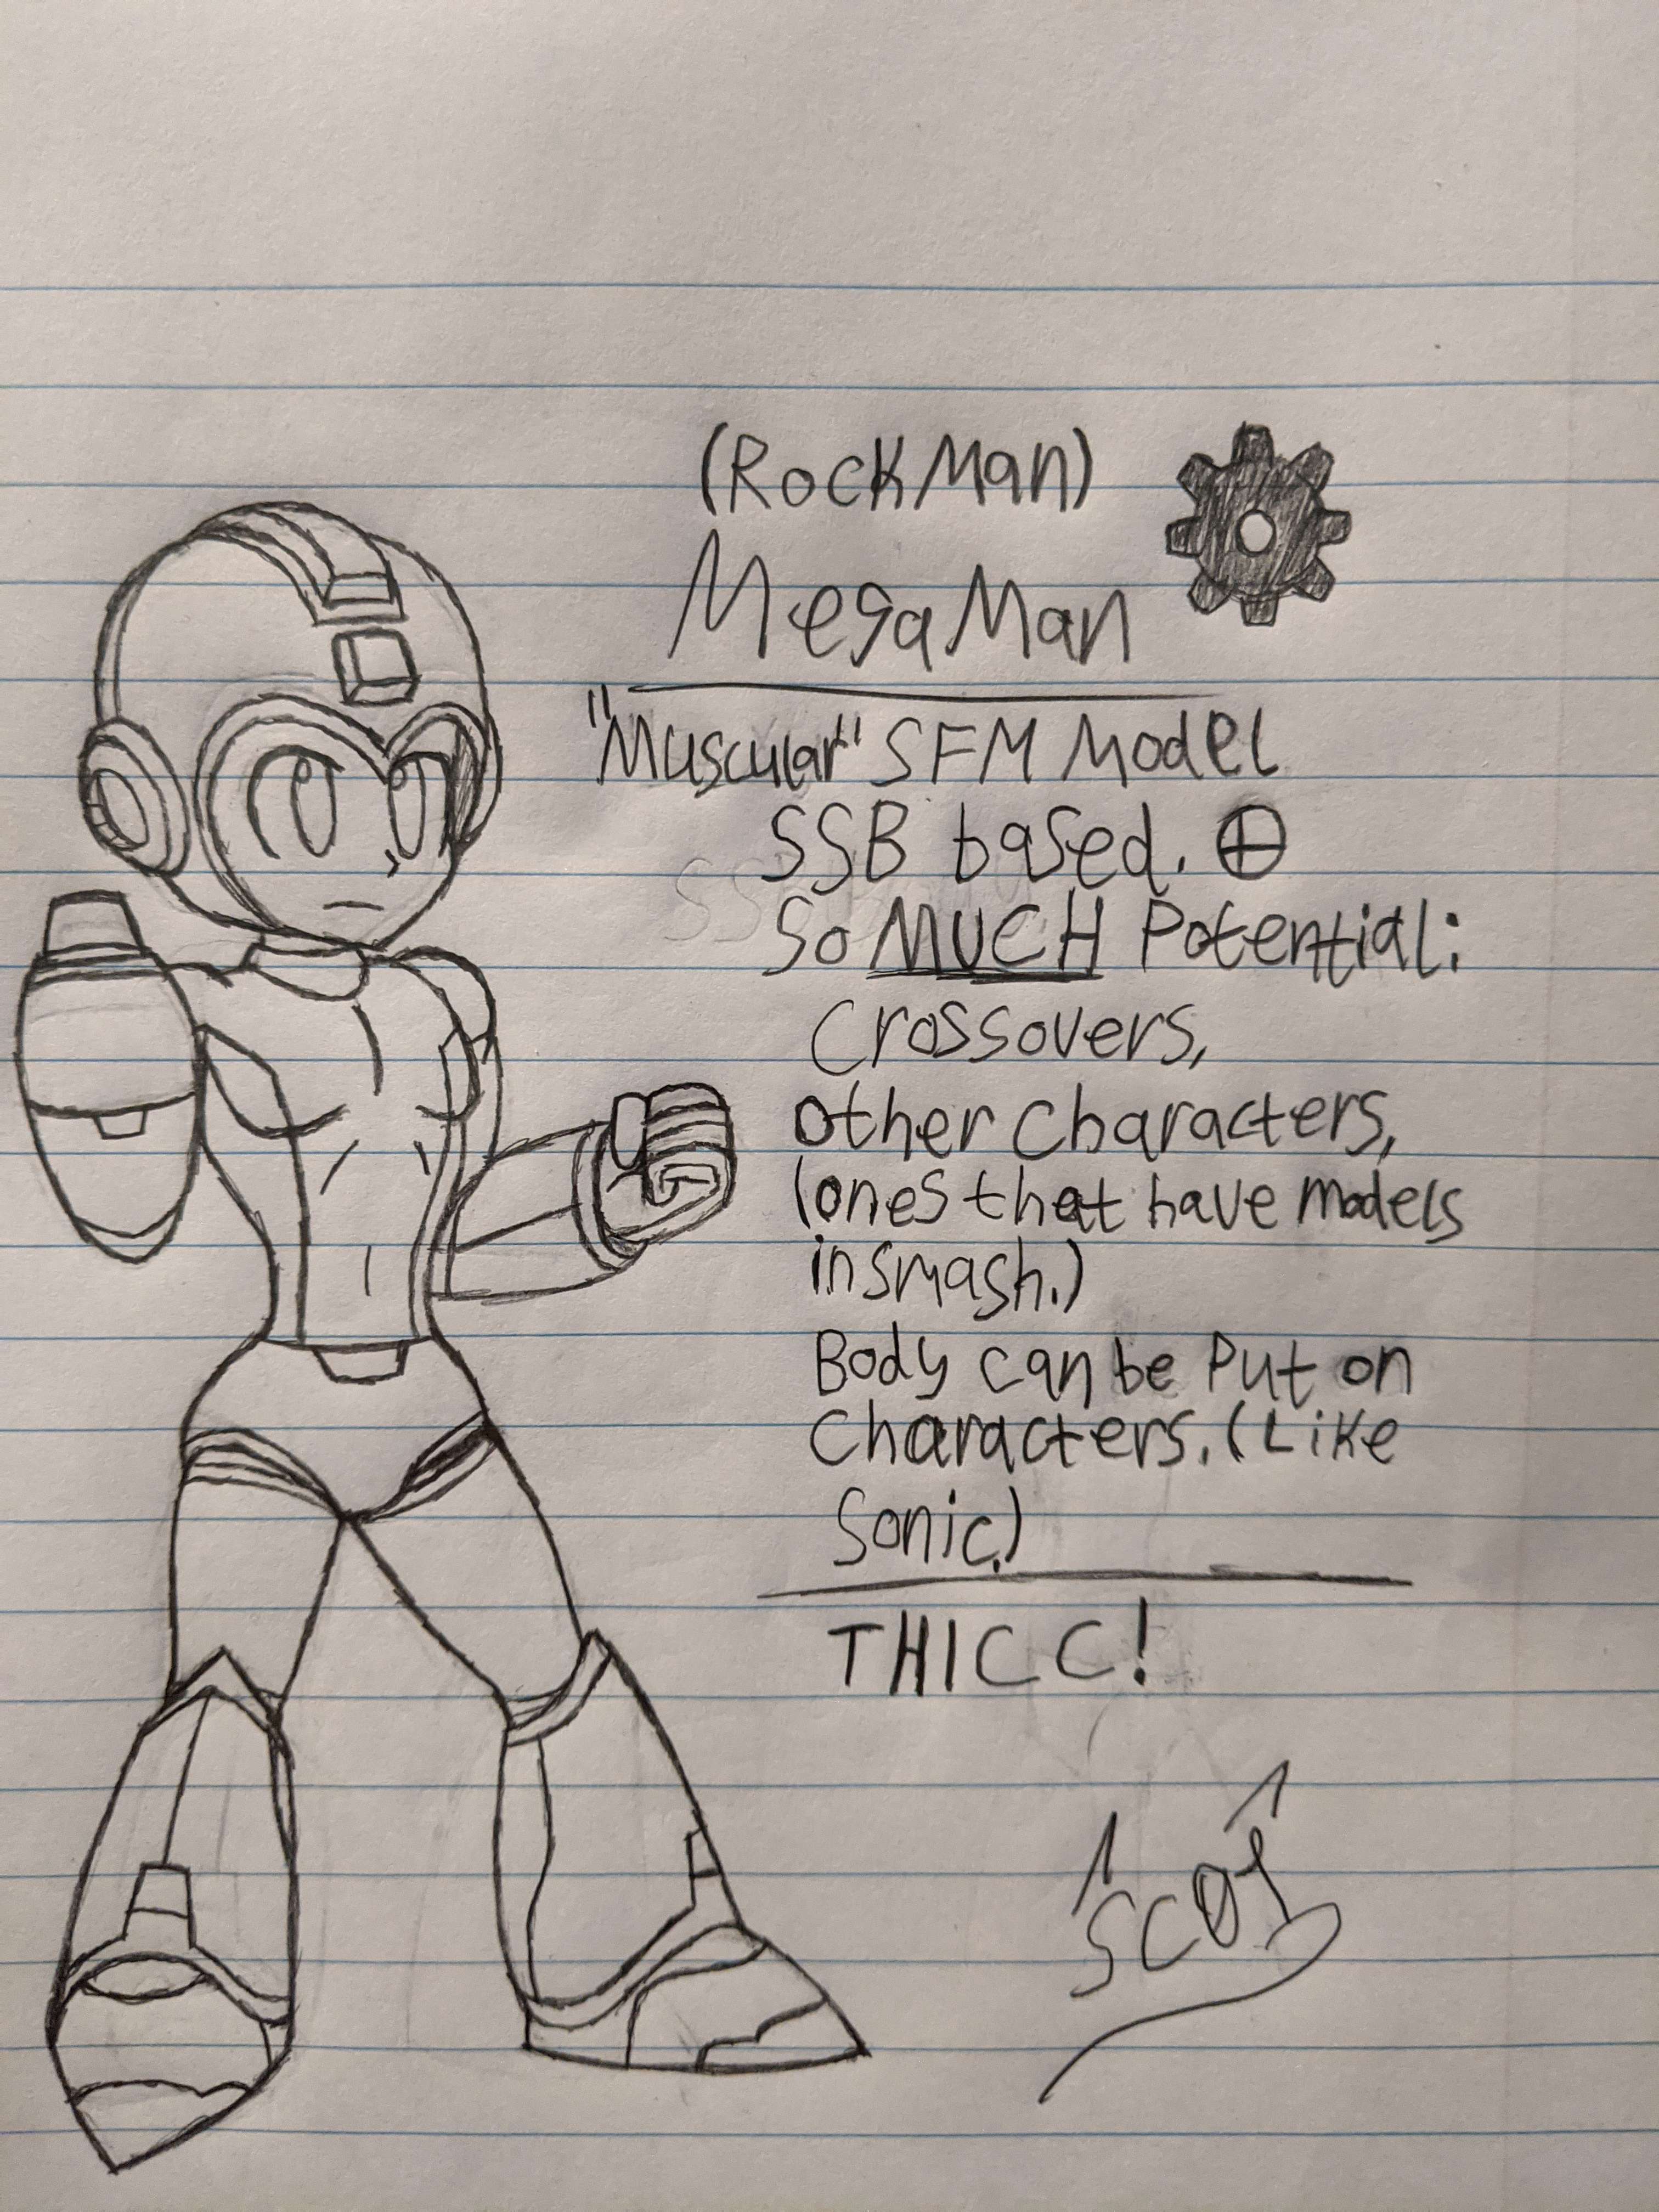 (RockMan)
MegaMan
"Muscular" SFM Model
SSB based.
So MUCH Potential:
Crossovers,
other characters,
(ones that have models
in smash.)
Body can be Put on
characters. (Like
Sonic.)
THICC!
SCOT